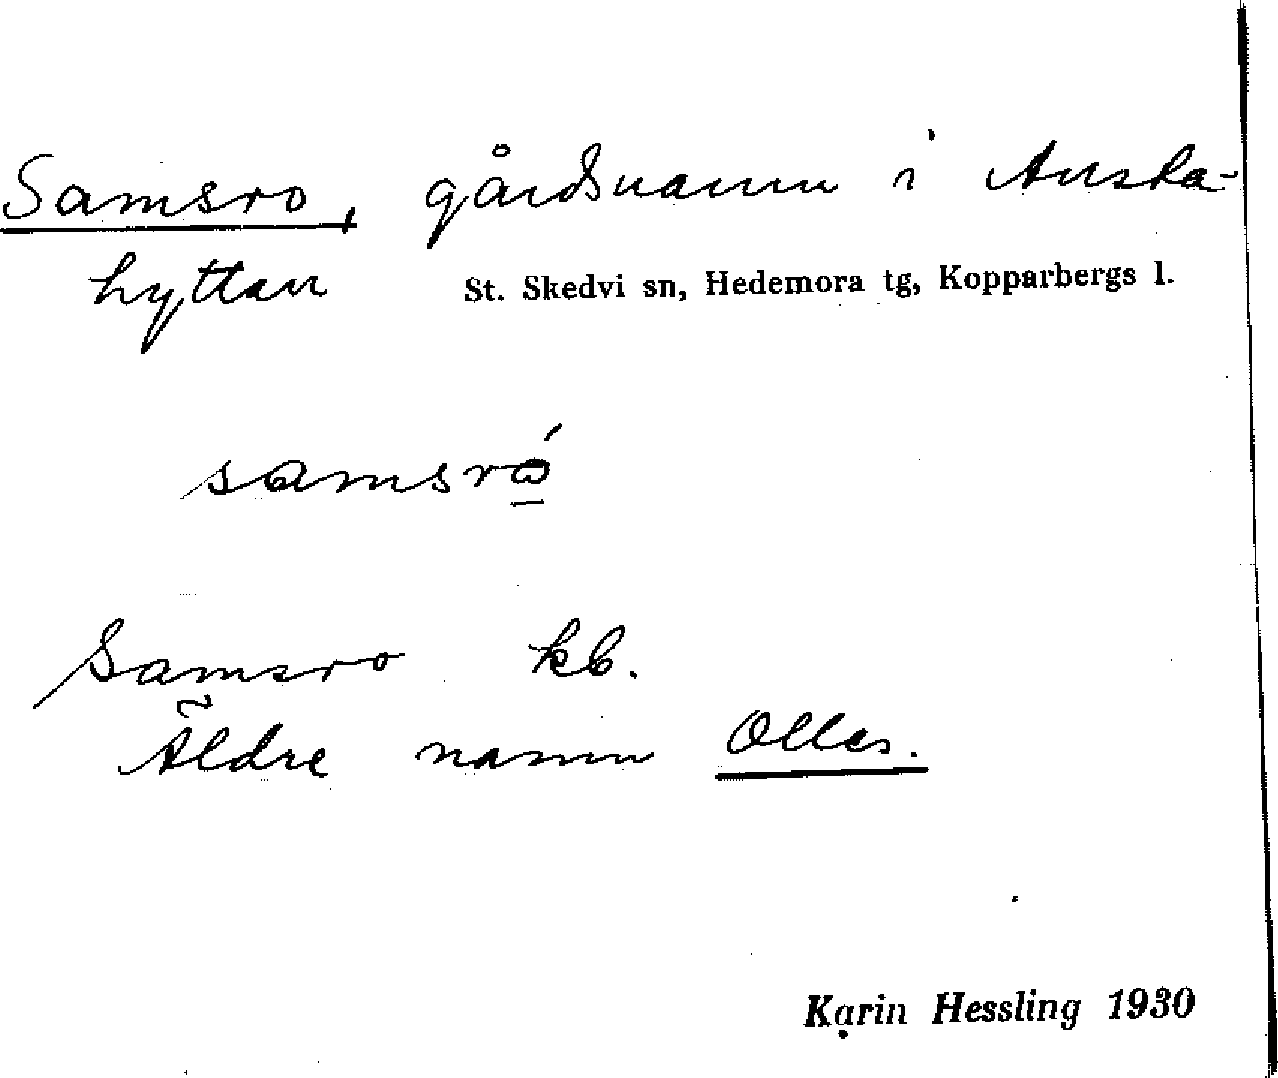 Samsro, gårdsnamn i Ansta-
hyttan St. Skedvi sn, Hedemora tg, Kopparbergs l.
samsró
Samsro kb.
Äldre namn Olles.
Karin Hessling 1930